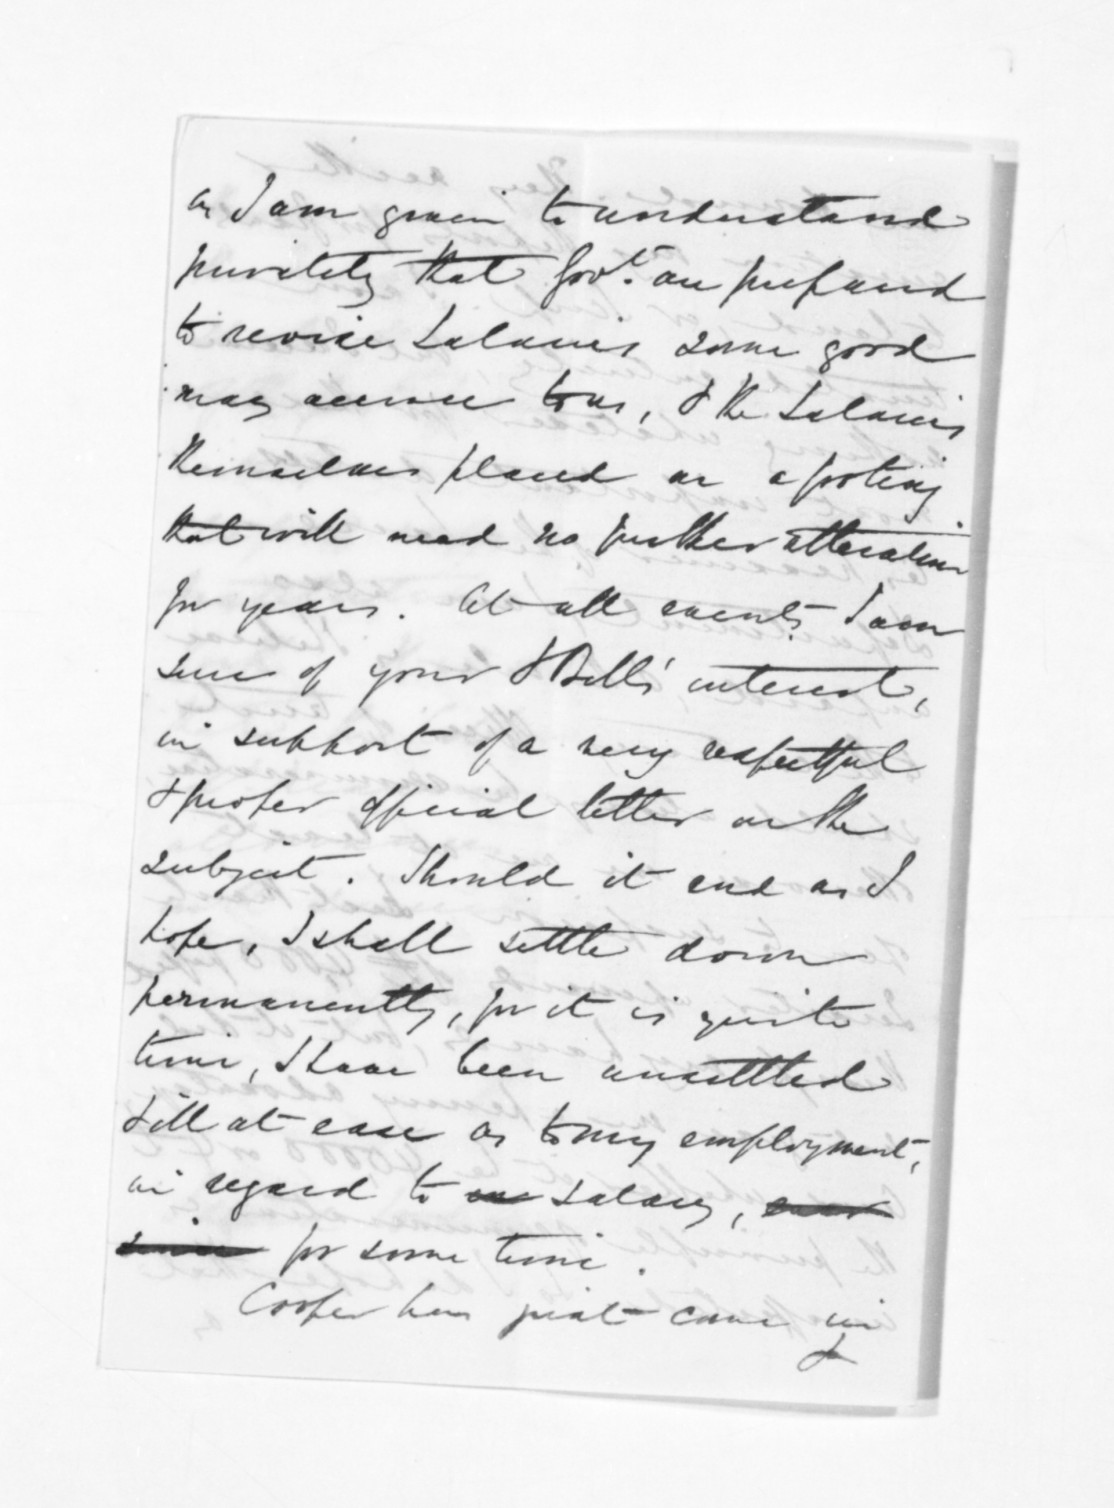 as I am given to understand
privately that Govt. are prepared
to revise Salaries some good
may accrue to us, & the Salaries
themselves placed on a footing
that will need no further alteration
for years. At all events I am
sure of your & Bell's interest,
in support of a very respectful
& proper official letter on the
subject. Should it end as I
hope, I shall settle down
permanently, for it is quite
time, I have been unsettled
& ill at ease as to my employment,
in regard to salary,
for some time.
Cooper has just come in
&